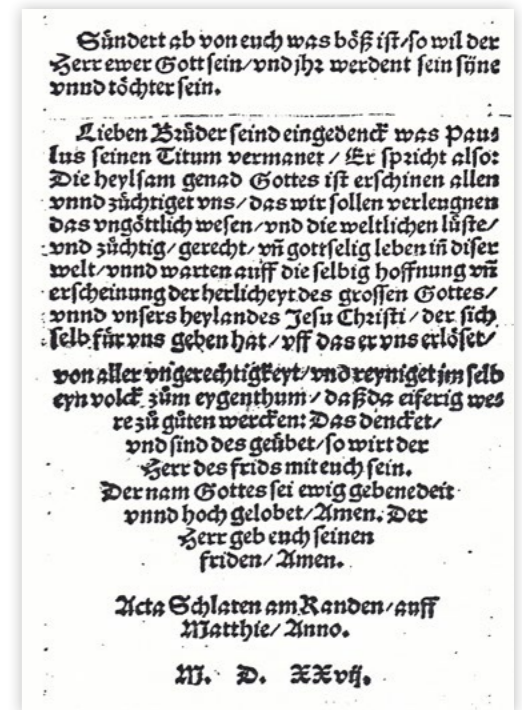 Sündert ab von euch was böß ist/so wil der
Herr ewer Gott sein/vnd jhr werdent sein süne
vnnd töchter sein.
Lieben Brůder seind eingedenck was Pau⸗
lus seinen Titum vermanet / Er spricht also:
Die heylsam genad Gottes ist erschinen allen
vnnd züchtiget vns/das wir sollen verleugnen
das vngöttlich wesen/vnd die weltlichen lüste/
vnd züchtig/gerecht/vñ gottselig leben iñ diser
welt/vnnd warten auff die selbig hoffnung vñ
erscheinung der herlicheyt des grossen Gottes/
vnnd vnsers heylandes Jesu Christi/der sich
selb für vns geben hat/vff das er vns erlöset/
von aller vngerechtigkeyt/vnd reyniget jm selb
eyn volck zům eygenthum/daß da eiferig we⸗
re zů gůten wercken: Das dencket/
vnd sind des geůbet/so wirt der
Herr des frids mit euch sein.
Der nam Gottes sei ewig gebenedeit
vnnd hoch gelobet/Amen. Der
Herr geb euch seinen
friden/Amen.
Acta Schlaten am Randen/auff
Matthie/Anno.
M. D. XXvij.